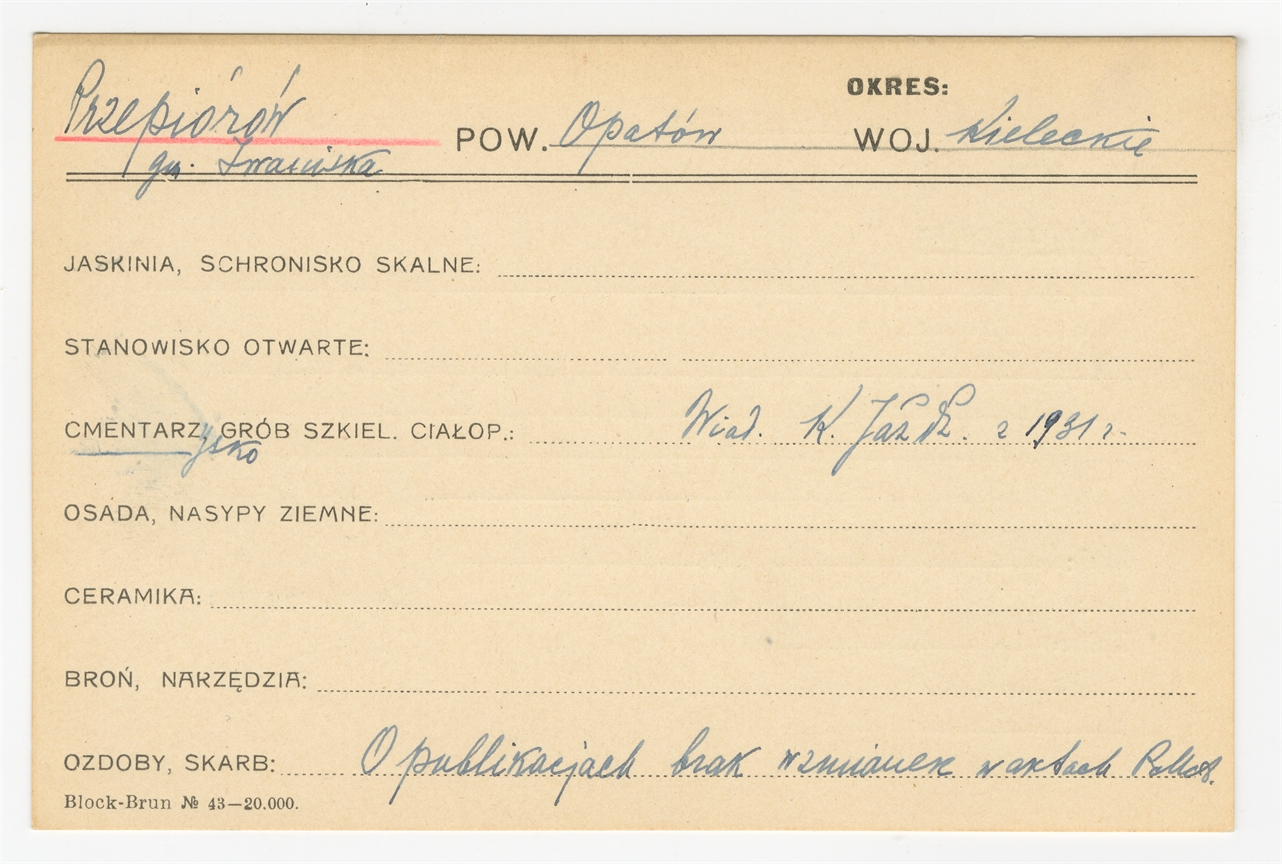 OKRES:
Przepiórów POW. Opatów WOJ. Kieleckie
gm. Iwaniska
JASKINIA, SCHRONISKO SKALNE:
STANOWISKO OTWARTE:
CMENTARZysko, GRÓB SZKIEL. CIAŁOP.: Wiad. K. Jażdż. z 1931 r.
OSADA, NASYPY ZIEMNE:
CERAMIKA:
BROŃ, NARZĘDZIA:
OZDOBY, SKARB: O publikacjach brak wzmianek w aktach
Block-Brun № 43—20.000.